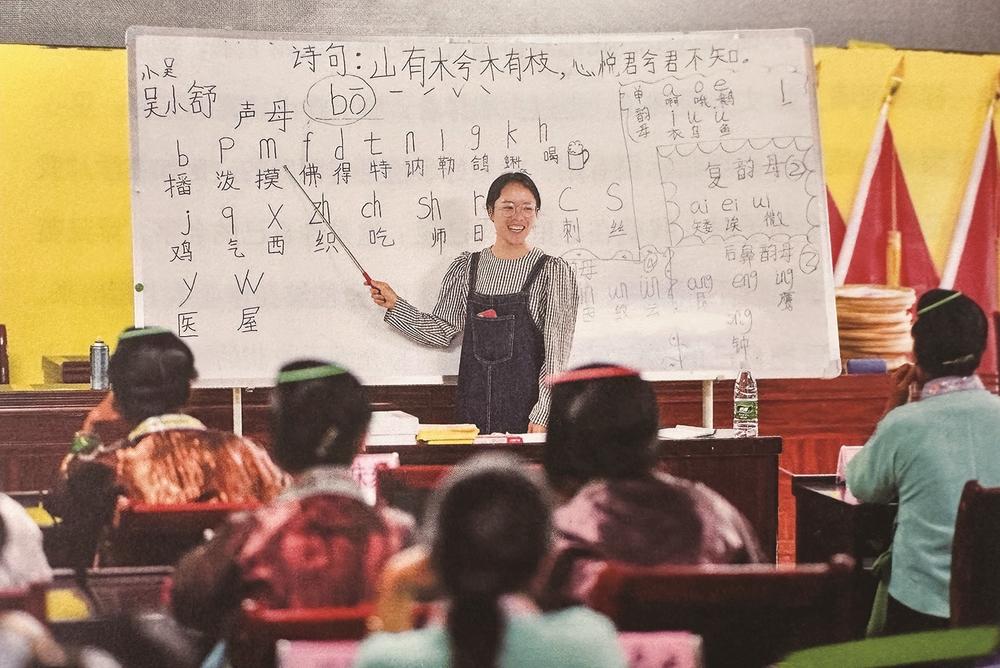 诗句：山有木兮木有枝，心悦君兮君不知。
小吴
吴小舒
声母
bō
b p m f d t n l g k h
播 泼 摸 佛 得 特 讷 勒 鸽 蝌 喝
j q x zh ch sh r c s
鸡 气 西 织 吃 师 日 刺 丝
y w
医 屋
单韵母
a o e
啊 哦 鹅
i u ü
衣 乌 鱼
复韵母②
ai ei ui
矮
后鼻韵母
ang eng ing
鹰
ong
钟
un ün
云